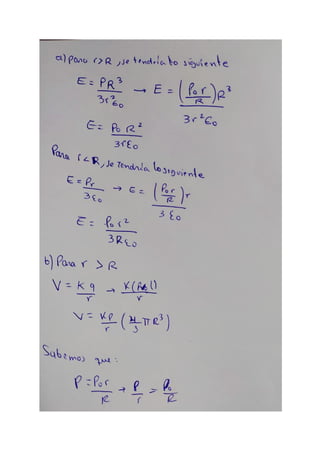 a) para r>R, se tendría lo siguiente
E = ρR³ / 3r²ε₀ → E = (ρ₀r / R) R³ / 3r²ε₀
E = ρ₀R² / 3rε₀
Para r<R, se tendría lo siguiente
E = ρr / 3ε₀ → E = (ρ₀r / R) r / 3ε₀
E = ρ₀r² / 3Rε₀
b) Para r > R
V = K q / r →
V = Kρ / r (4/3 πR³)
Sabemos que:
ρ = ρ₀r / R → ρ / r = ρ₀ / R